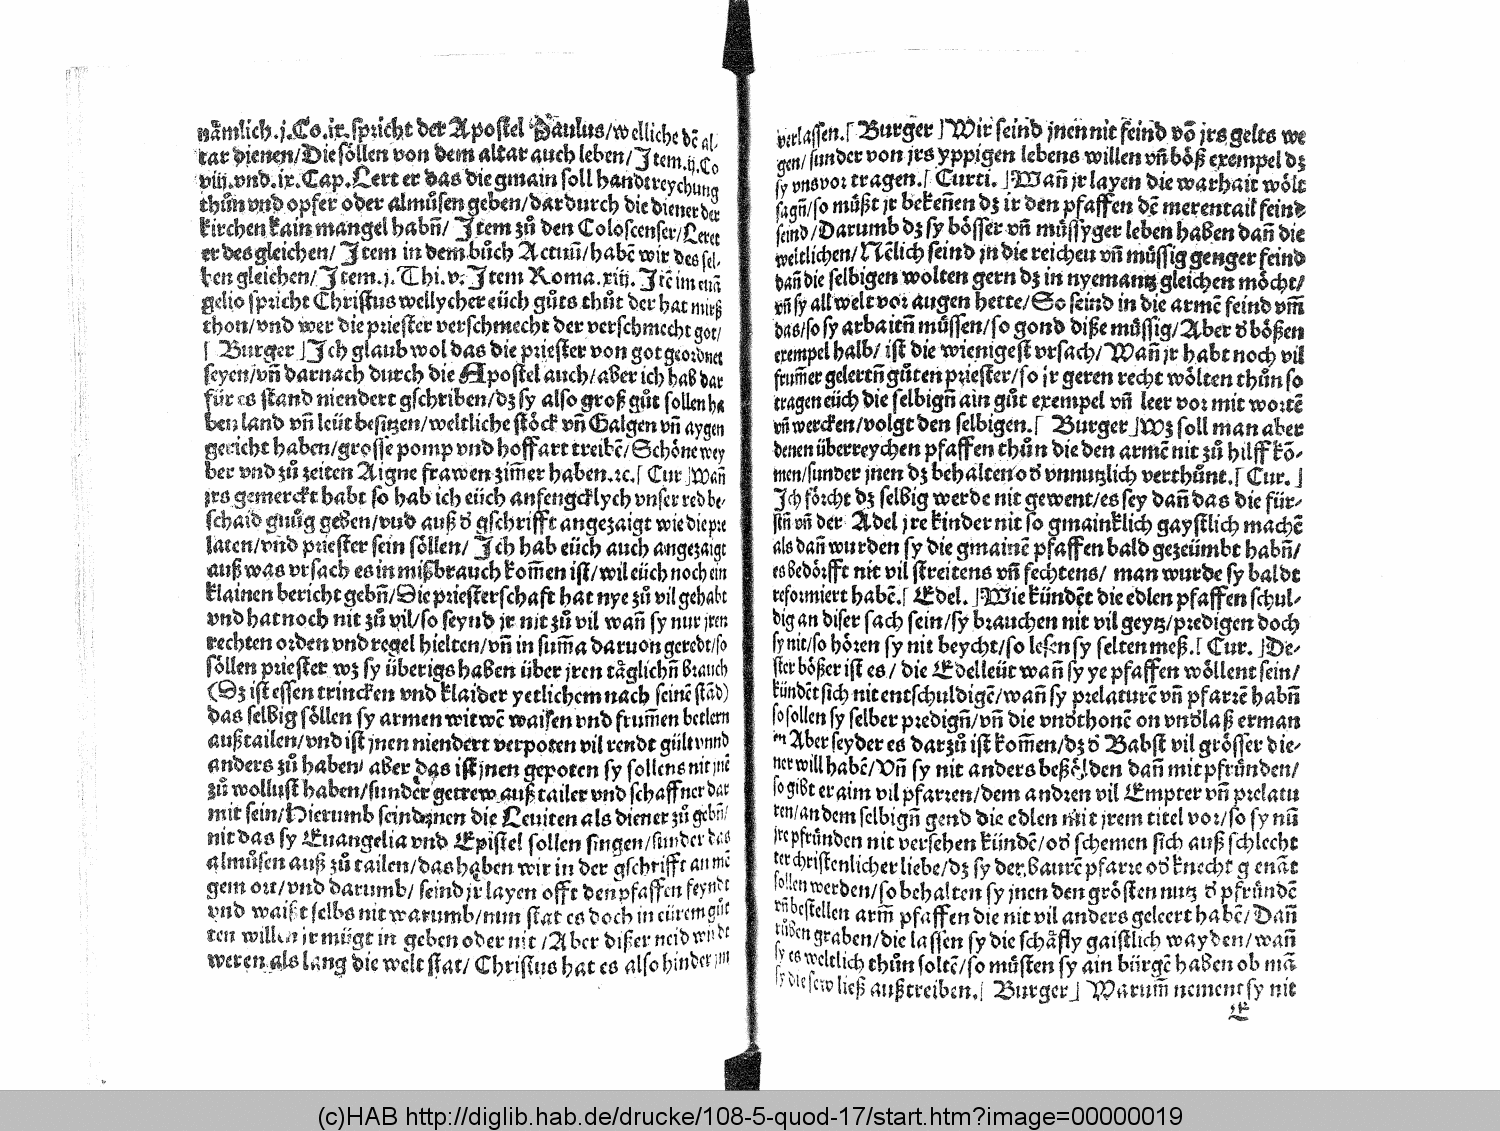 nämlich.j.Co.ix.spricht der Apostel Paulus/welliche dẽ al⸗
tar dienen/Die söllen von dem altar auch leben/Item.ij.Co
viij.vnd.ix.Cap.Lert er das die gmain soll handtreychung
thůn vnd opfer oder almůsen geben/dardurch die diener der
kirchen kain mangel habñ/ Item zů den Coloscenser/Leret
er des gleichen/ Item in dem bůch Actuū/habẽ wir des sel⸗
ben gleichen/Item.j.Thi.v.Item Roma.xiij. Itẽ im euã
gelio spricht Christus wellycher eüch gůts thůt der hat mirß
thon/vnd wer die priester verschmecht der verschmecht got/
⌈ Burger ⌋Ich glaub wol das die priester von got geordnet
seyen/vñ darnach durch die Apostel auch/aber ich hab dar
für es stand niendert gschriben/dz sy also groß gůt sollen ha
ben land vñ leüt besitzen/weltliche stöck vñ Galgen vñ aygen
gericht haben/grosse pomp vnd hoffart treibẽ/Schöne wey
ber vnd zů zeiten Aigne frawen zim̃er haben.ꝛc.⌈ Cur ⌋Wañ
jrs gemerckt habt so hab ich eüch anfengcklych vnser red be⸗
schaid gnůg geben/vnd auß d' gschrifft angezaigt wie die pre
laten/vnd priester sein söllen/ Ich hab eüch auch angezaigt
auß was vrsach es in mißbrauch kom̃en ist/wil eüch noch ein
klainen bericht gebñ/Die priesterschaft hat nye zů vil gehabt
vnd hat noch nit zů vil/so seynd jr nit zů vil wañ sy nur jren
rechten orden vnd regel hielten/vñ in sum̃a daruon geredt/so
söllen priester wz sy überigs haben über jren täglichñ brauch
(Dz ist essen trincken vnd klaider yetlichem nach seinẽ stãd)
das selbig söllen sy armen witwẽ waisen vnd frum̃en betlern
außtailen/vnd ist jnen niendert verpoten vil rendt gült vnnd
anders zů haben/ aber das ist jnen gepoten sy sollens nit jnẽ
zů wollust haben/sunder getrew außtailer vnd schaffner dar
mit sein/Hierumb seind jnen die Leuiten als diener zů gebñ/
nit das sy Euangelia vnd Epistel sollen singen/sunder das
almůsen auß zů tailen/das haben wir in der gschrifft an mẽ
gem ort/vnd darumb/ seind jr layen offt den pfaffen feyndt
vnd waißt selbs nit warumb/nun stat es doch in eürem gůt
ten willen jr mügt in geben oder nit /Aber dißer neid wirdt
weren als lang die welt stat/ Christus hat es also hinder jm
verlassen.⌈ Burger ⌋Wir seind jnen nit feind vō jrs gelts we
gen/sunder von jrs yppigen lebens willen vñ böß exempel dz
sy vns vor tragen.⌈ Curti. ⌋Wañ jr layen die warhait wölt
sagñ/so müßt jr bekeñen dz ir den pfaffen dẽ merentail feind
seind/Darumb dz sy bösser vñ müssyger leben haben dañ die
weltlichen/Nẽlich seind jn die reichen vñ müssig genger feind
dañ die selbigen wolten gern dz in nyemantz gleichen möcht/
vñ sy all welt vor augen hette/So seind in die armẽ feind vm̃
das/so sy arbaitñ müssen/so gond diße müssig/Aber d' bößen
exempel halb/ ist die wienigest vrsach/Wañ jr habt noch vil
frum̃er gelertñ gůten priester/so jr geren recht wölten thůn so
tragen eüch die selbigñ ain gůt exempel vñ leer vor mit wortẽ
vñ wercken/volgt den selbigen.⌈ Burger⌋Wz soll man aber
denen überreychen pfaffen thůn die den armẽ nit zů hilff kō⸗
men/sunder jnen dz behalten od' vnnutzlich verthůnt.⌈ Cur. ⌋
Ich förcht dz selbig werde nit gewent/es sey dañ das die für⸗
stñ vñ der Adel jre kinder nit so gmainklich gaystlich machẽ
als dañ wurden sy die gmainẽ pfaffen bald gezeümbt habñ/
es bedörfft nit vil streitens vñ fechtens/ man wurde sy baldt
reformiert habẽ.⌈ Edel. ⌋Wie kündẽt die edlen pfaffen schul⸗
dig an diser sach sein/sy brauchen nit vil geytz/predigen doch
sy nit/so hören sy nit beycht/so lesen sy selten meß.⌈ Cur. ⌋De⸗
ster bößer ist es/ die Edelleüt wañ sy ye pfaffen wöllent sein/
kündẽt sich nit entschuldigẽ/wañ sy prelaturẽ vñ pfarrẽ habñ
so sollen sy selber predigñ/vñ die vnd'thonẽ on vnd'laß erman
ñ Aber seyder es darzů ist kom̃en/dz d' Babst vil grösser die⸗
ner will habẽ/Vñ sy nit anders besölden dañ mit pfründen/
so gibt er aim vil pfarren/dem andren vil Empter vñ prelatu
ren/an dem selbigñ gend die edlen mit jrem titel vor/so sy nū
jre pfründen nit versehen kündẽ/od' schemen sich auß schlecht
ter christenlicher liebe/dz sy der baurẽ pfarre od' knecht genãt
sollen werden/so behalten sy jnen den grösten nutz d' pfründẽ
vñ bestellen arm̃ pfaffen die nit vil anders geleert habẽ/Dañ
růben graben/die lassen sy die schäfly gaistlich wayden/wañ
sy es weltlich thůn soltẽ/so müsten sy ain bürgẽ haben ob mã
sy die sew ließ außtreiben.⌈ Burger⌋ Warum̃ nement sy nit
E
(c)HAB http://diglib.hab.de/drucke/108-5-quod-17/start.htm?image=00000019